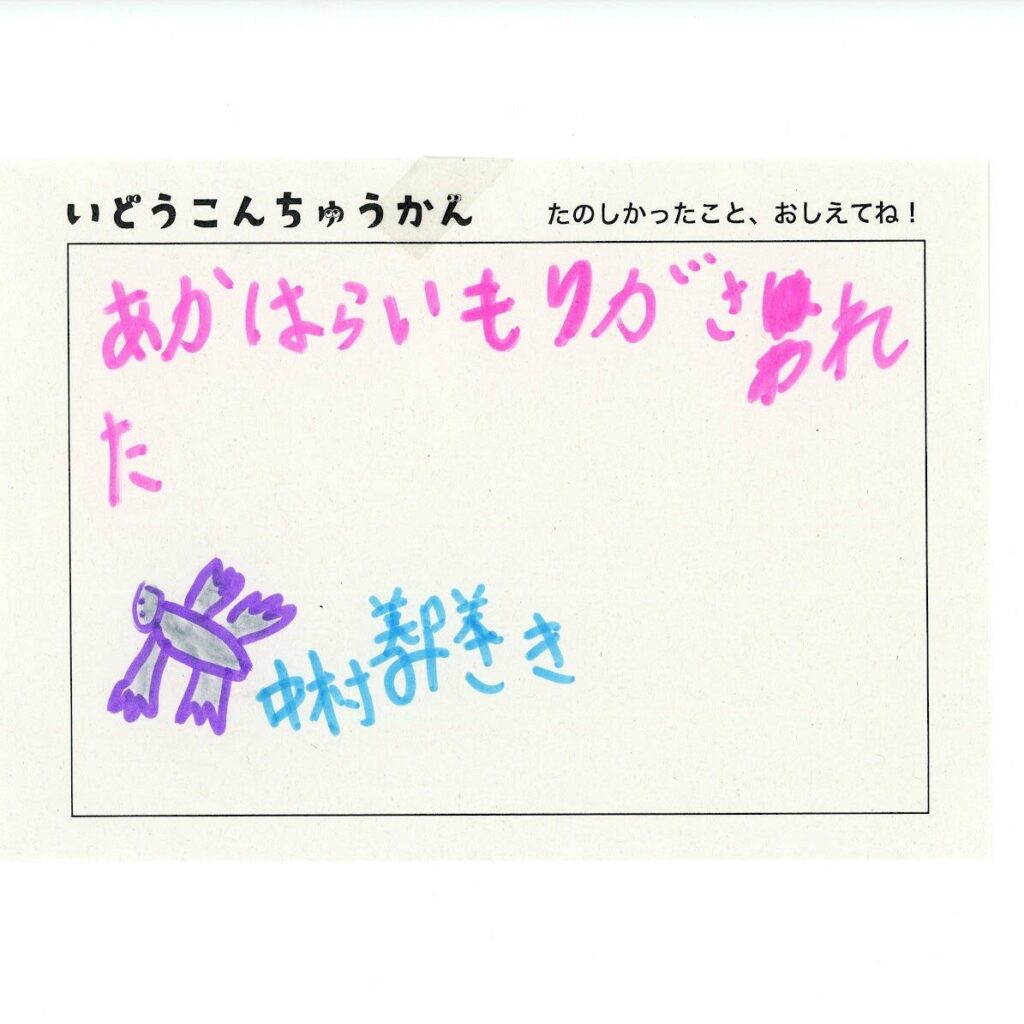 いどうこんちゅうかん たのしかったこと、おしえてね！
あかはらいもりがさわれ
た
中村
き